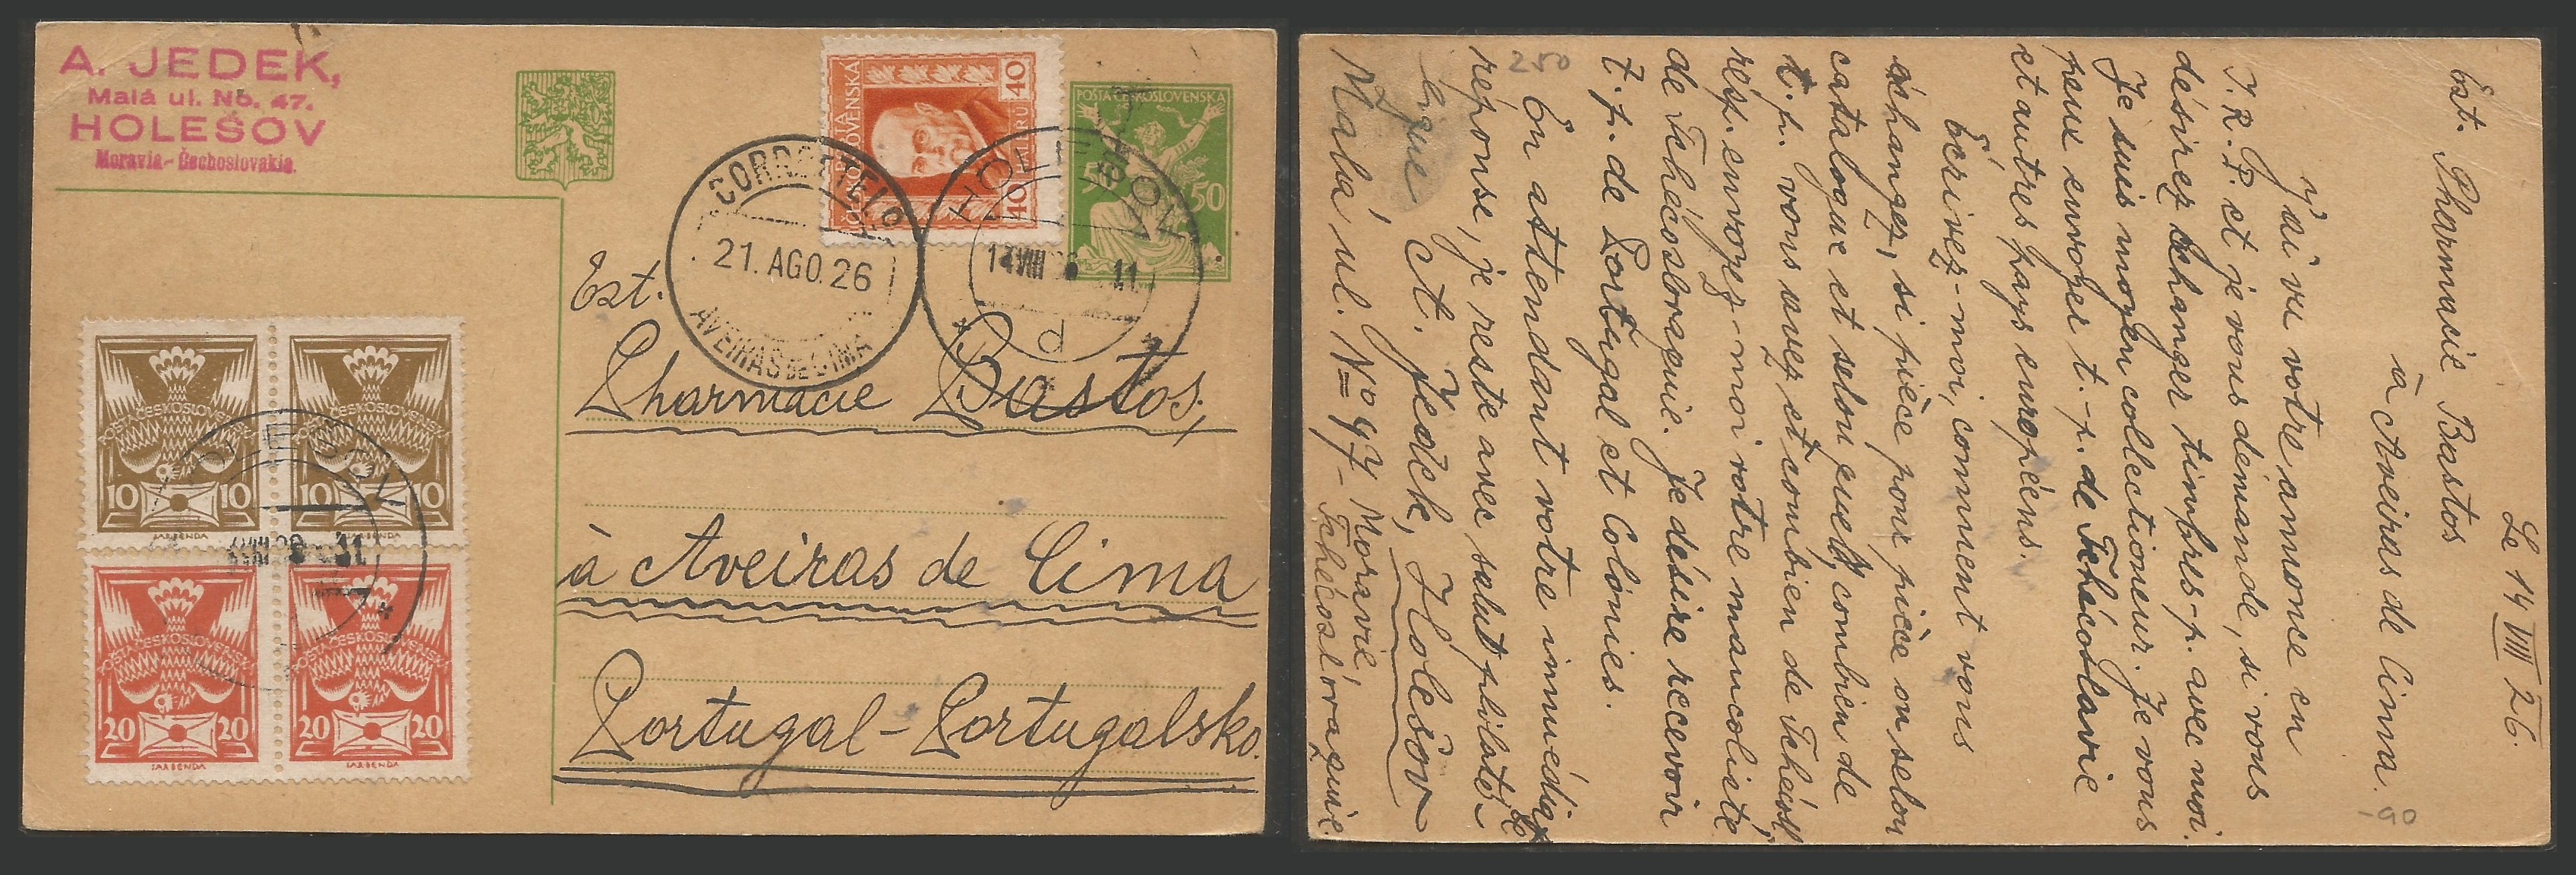 A. JEDEK,
Malá ul. No. 47.
HOLEŠOV
Moravia-Čechoslovakia.
ČESKOSLOVENSKÁ
40 HALÉŘŮ 40
POŠTA ČESKOSLOVENSKÁ
50 50
CORREIO E TELO
21. AGO. 26
AVEIRAS DE CIMA
HOLEŠOV
14 VIII 26 11
d
POSTA ČESKOSLOVENSKÁ
10 10
POSTA ČESKOSLOVENSKÁ
10 10
HOLEŠOV
11
POSTA ČESKOSLOVENSKÁ
20 20
POSTA ČESKOSLOVENSKÁ
20 20
Ext.
Pharmacie Bastos,
á Aveiras de Cima
Portugal-Portugalsko.
Le 14 VIII 26.
Ext. Pharmacie Bastos
à Aveiras de Cima.
J'ai vu votre annonce en
I.R.P. et je vous démande, si vous
désirez échanger timbres-p. avec moi.
Je suis moyen collectioneur. Je vous
peux envoyer t.-p. de Tchécoslavie
et autres pays européens.
Écrivez-moi, comment vous
échangez, si pièce pour pièce ou selon
catalogue et selon quel, combien de
t.p. vous avez et combien de Tchécosl.
résp. envoyez-moi votre mancoliste
de Tchécoslovaquie. Je désire recevoir
t.p. de Portugal et Colonies.
En attendant votre immédiate
réponse, je reste avec salut philatéli-
que A. Jedek, Holešov
Malá ul. No 47- Moravie
Tchécoslovaquie
250
-90